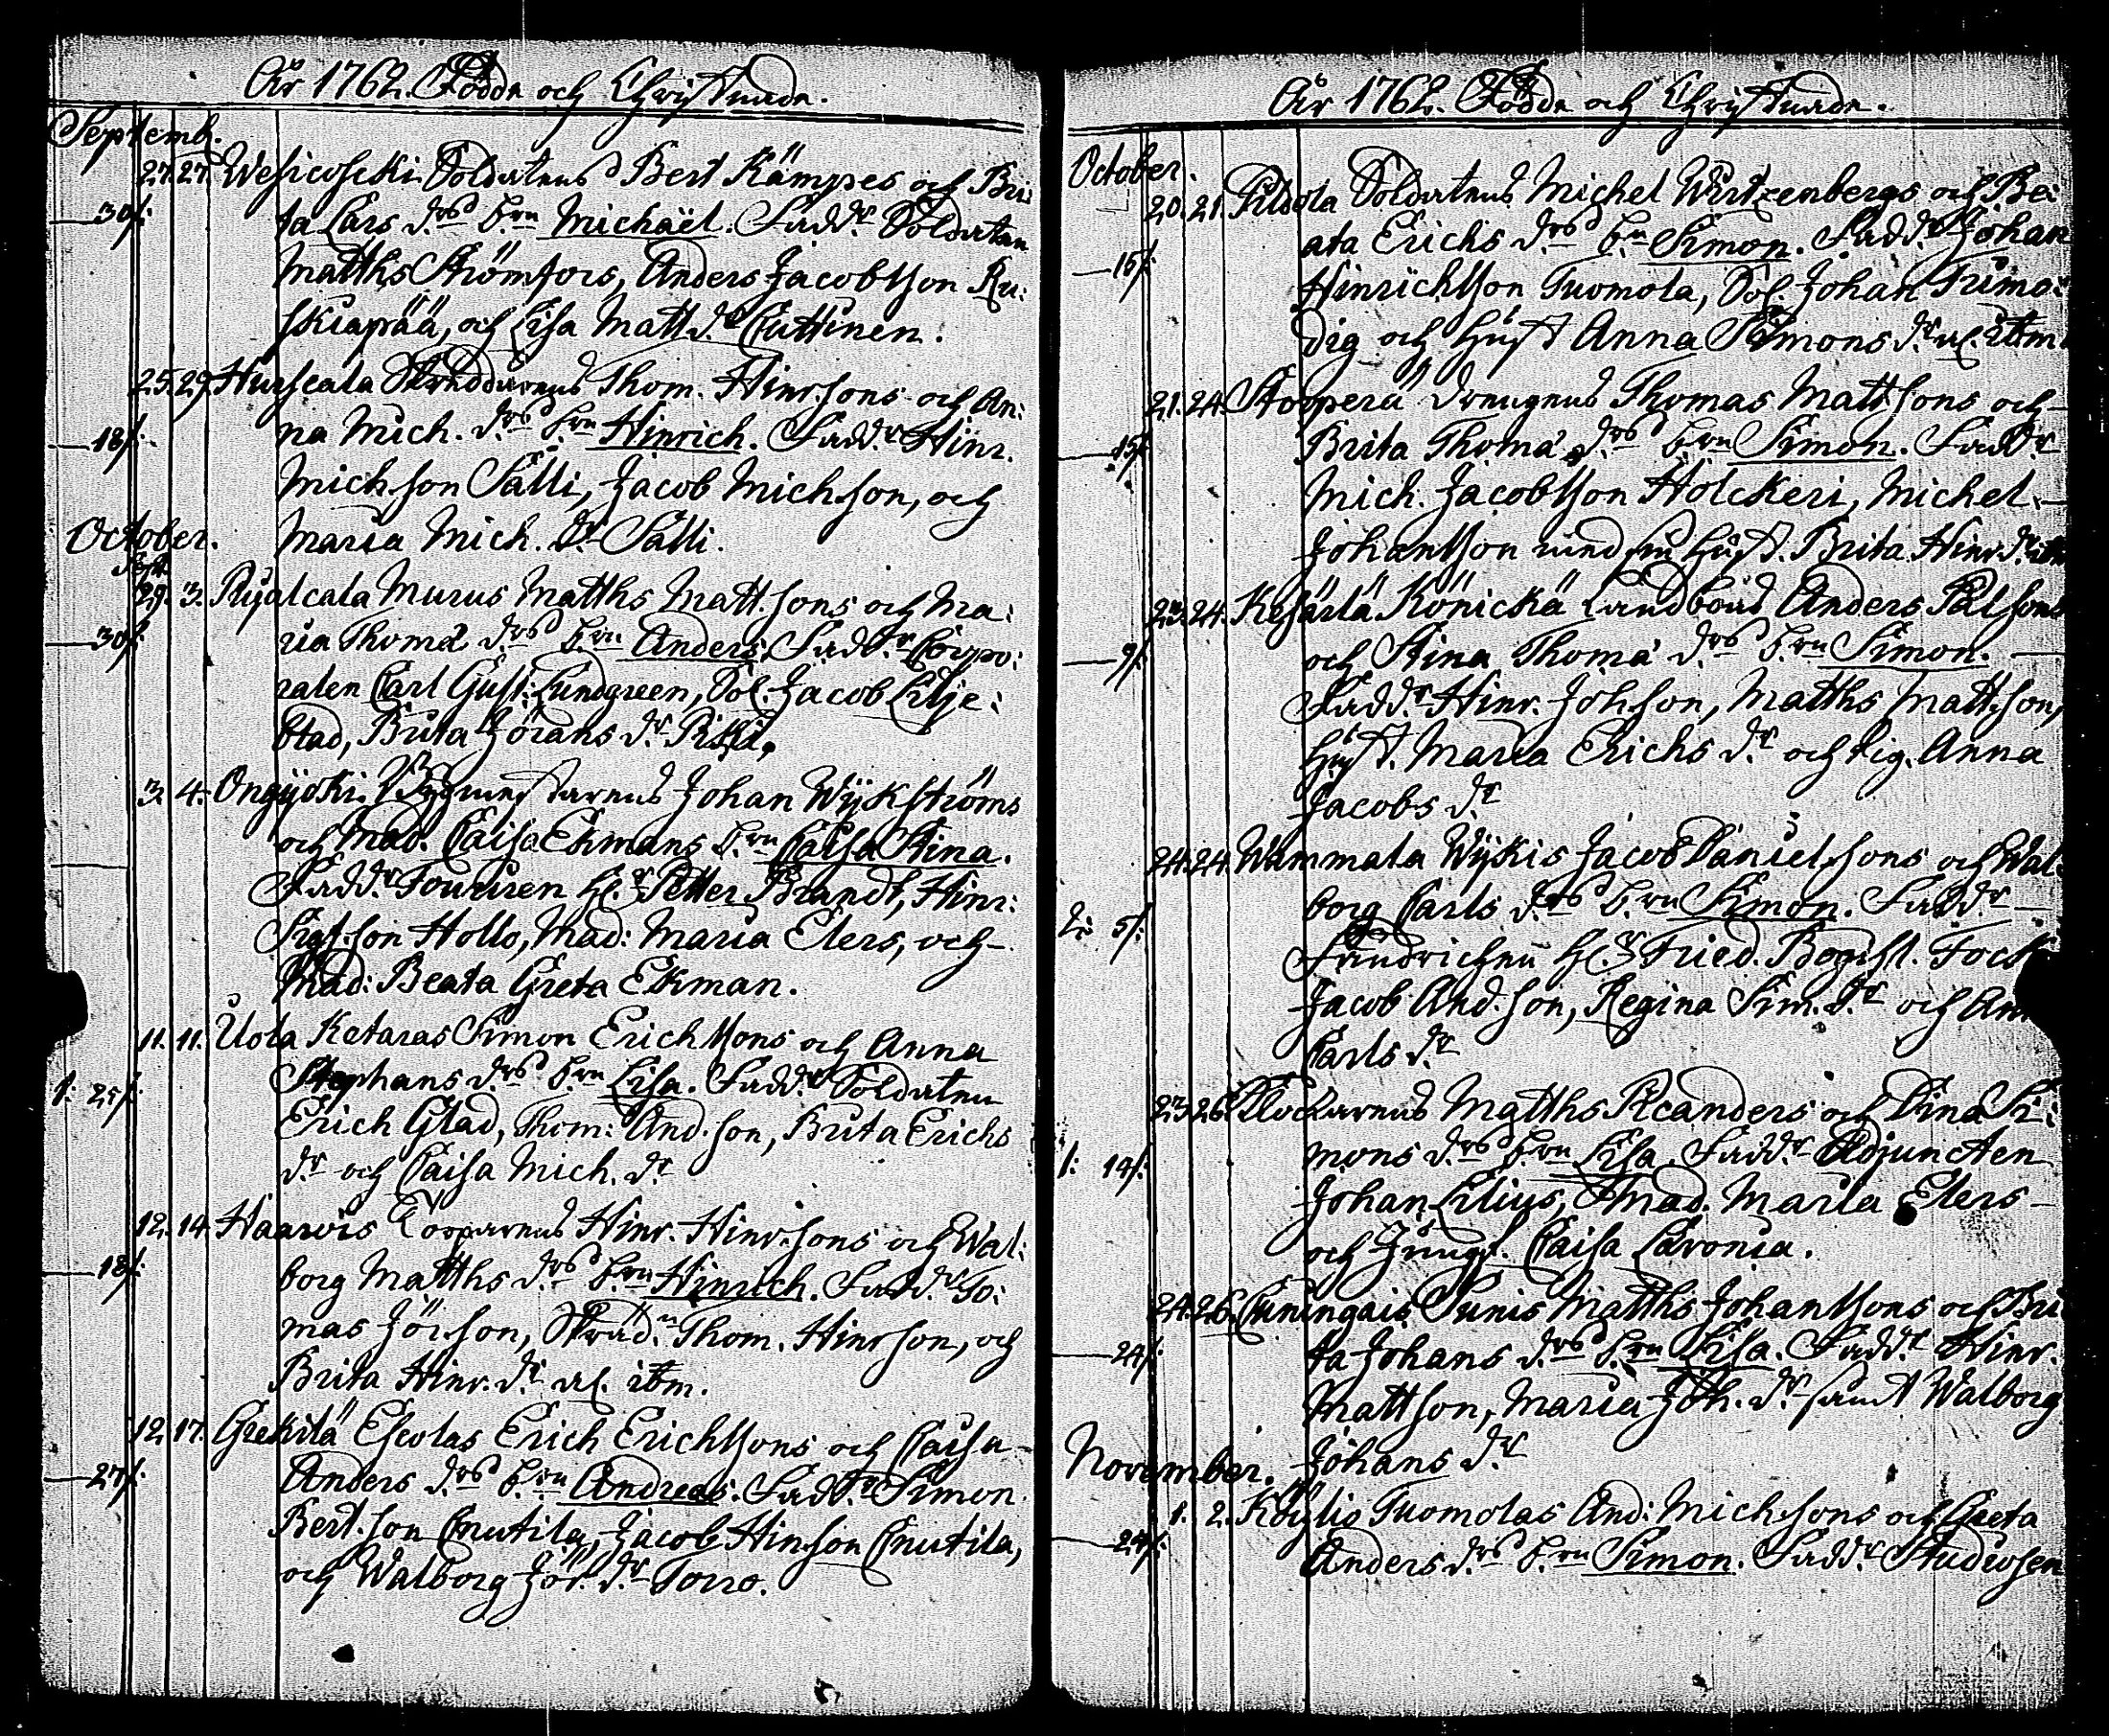 År 1762. Födde och Christnade.
Septemb.
27. 27. Wesicoscki Soldatens Bert Kämpes och Bri:
30/: ta Lars d:rs b:rn Michaël. Fadd:r Soldaten
Matths Strömfors, Anders Jacobsson Ru:
skiapää, och Lisa Matt. d:r Cuttinen.
25. 29. Hurscala Skräddarens Thom. Hinr.sons och An:
18/: na Mich. d:rs b:rn Hinrich. Fadd:r Hinr.
Mich.son Sälli, Jacob Mich.son, och
October. Maria Mich. d:r Sälli.
Sept.
29. 3. Murus Matths Matt.sons och Ma:
30/: ria Thoma d:rs b:rn Anders. Fadd:r Corpo:
ralen Carl Gust: Lundgreen, Sol: Jacob Lilje:
blad, Brita Görans d:r
3. 4. Ongijoki Byggmästarens Johan Wijkströms
och Mad. Caisa Ekmans b:rn Caisa Stina.
Fadd:r H:r Petter Brandt, Hinr:
Sigf.son Hollo, Mad: Maria Elers, och
Mad: Beata Greta Ekman.
11. 11. Uola Ketaras Simon Erichssons och Anna
1: 25/: Stephans d:rs b:rn Lisa. Fadd:r Soldaten
Erich Glad, Thom: And.son, Brita Erichs
d:r och Caisa Mich. d:r
12. 14. Haarois Hinr. Hinr.sons och Wal:
18/: borg Matths d:rs b:rn Hinrich. Fadd:r To:
mas Jör.son, Skräd:n Thom. Hinrson, och
Brita Hinr. d:r af itm.
12. 17. Grekilä Escolas Erich Erichssons och Caisa
27/: Anders d:rs b:rn Andreas. Fadd:r Simon
Bert.son Cnutila, Jacob Hinson Cnutila,
och Walborg Jör. d:r Torro.
År 1762. Födde och Christnade.
October.
20. 21. Soldatens Michel Wirtzenbergs och Be:
15/: ata Erichs d:rs b:rn Simon. Fadd:r Johan
Hinrichsson Tuomola, Sol. Johan Trimo:
dig och Hust. Anna Simons d:r af itm.
21. 24. Drengens Thomas Mattsons och
15/: Brita Thomä d:rs b:rn Simon. Fadd:r
Mich. Jacobsson Hölckeri, Michel
Johansson med sin hust. Brita Hinr. d:r
23. 24. Kesärlä Könickä Landboas Anders Pålsons
9/: och Stina Thomä d:rs b:rn Simon.
Fadd:r Hinr. Johson, Matths Mattson,
Hust. Maria Erichs d:r och Pig. Anna
Jacobs d:r
24. 24. Wammala Wijkis Jacob Danielsons och Wal:
2: 5/: borg Carls d:rs b:rn Simon. Fadd:r
Fändrichen H:r Fried. Fock
Jacob And.son, Regina Sim. d:r och Anna
Carls d:r
23. 26. Klockarens Matths Reanders och Dina Si:
1: 14/: mons d:rs b:rn Lisa. Fadd:r Adjuncten
Johan Lilius, Mad. Maria Elers
och Jungf. Caisa Lavonia.
24. 26. Cuningais Sunis Matths Johanssons och Bri
24/: ta Johans d:rs b:rn Lisa. Fadd:r Hinr.
Mattson, Maria Joh. d:r samt Walborg
November. Johans d:r
1. 2. Köylis Tuomolas And: Michsons och Greta
24/: Anders d:rs b:rn Simon. Fadd:r Studiosen